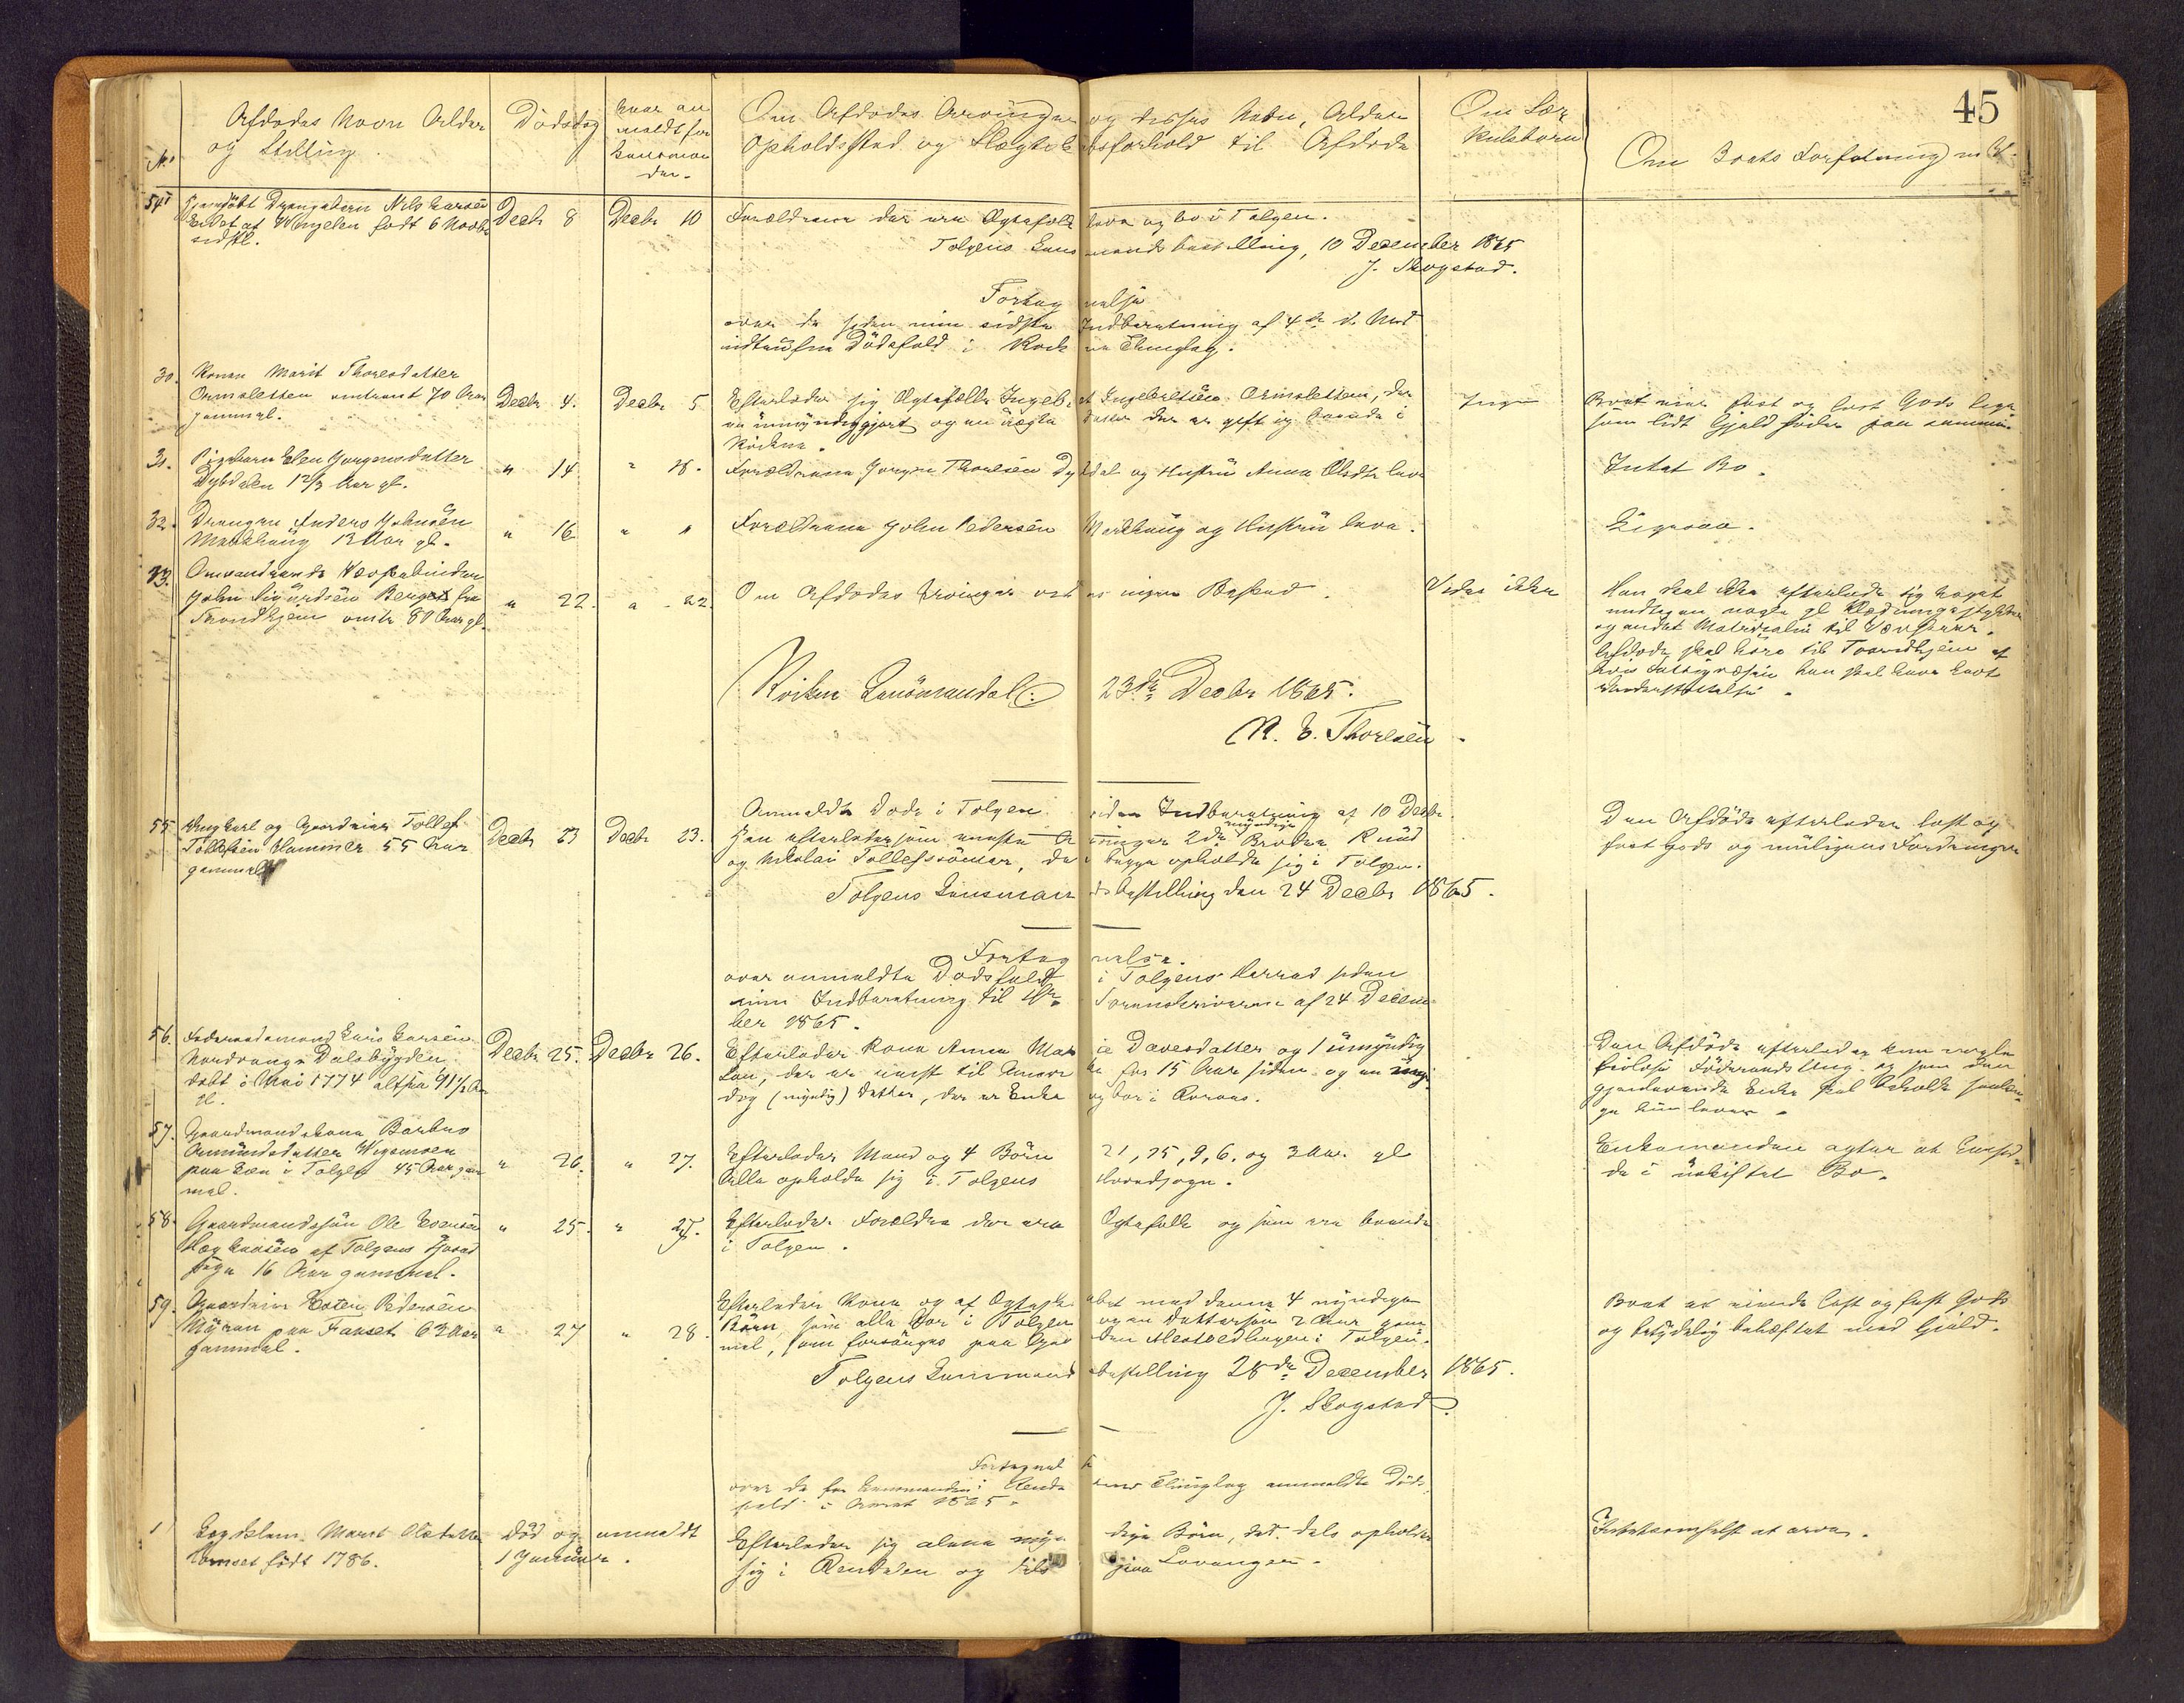 45
No
Afdødes Navn Alder
og Stilling.
Dødsdag
Naar an
meldt for
Lensman
den.
Om Afdødes Arvinger og disses Navn, Alder
Opholdssted og Slægtskabsforhold til Afdøde
Om Sær
kulsbørn
Om Boets Forfatning m.
54
Hjemdøbt Drengebarn Nils Larsen
af Vingelen født 6 Novbr
sidstl.
Decbr 8
Decbr 10
Forældrene der ere Ægtefolk leve og bo i Tolgen.
Tolgens Lensmandsbestilling, 10 December 1865
J. Skogstad.
Fortegnelse
over de siden min sidste Indberetning af 4de ds Md
indtrufne Dødsfald i Thinglag.
30.
Konen Marit Thoresdatter
Ormsletten omtrent 70 Aar
gammel.
Decbr 4.
Decbr 5
Efterlader sig Ægtefælle Ingebret Ingebretsen Ormsletten, der
er umyndiggjort og en ægte Datter der er gift og boende i
Ingen
Boet eier fast og løst Gods lige
som lidt Gjeld hviler paa samme.
31.
Pigebarn Elen Jørgensdatter
Dybdalen 1 2/3 Aar gl.
" 14
" 18.
Forældrene Jørgen Thoresen Dybdal og Hustru Anna Olsdtr leve
Intet Bo.
32.
Drengen Anders Johnsen
13 Aar gl.
" 16
" "
Forældrene John Pedersen og Hustru leve.
Ligesaa.
33.
Omvandrende Væveskebinder
John Sivertsen Berget fra
Trondhjem omtr 80 Aar gl.
" 22.
" 22.
Om Afdødes Arvinger vides ingen Besked.
Vides ikke
Han skal ikke efterlade sig noget
undtagen nogle gl Klædningsstykker
og andet Materiale til
Afdøde skal høre til Trondhjem af
hvis Fattigvæsen han skal have havt
Understøttelse.
Lensmandsb: 23de Decbr 1865.
N. E. Thoresen
Anmeldte Døde i Tolgen siden Indberetning af 10 Decbr
55
Ungkarl og Gaardeier Tollef
Tollefsen Hammer 55 Aar
gammel
Decbr 23
Decbr 23.
Han efterlader som eneste Arvinger 2de myndige Brødre Knud
og Nikolai Tollefssønner, der begge opholde sig i Tolgen.
Tolgens Lensmandsbestilling den 24 Decbr 1865.
Den Afdøde efterlader løst og
fast Gods og muligens Fordringer
Fortegnelse.
over anmeldte Dødsfald i Tolgens Herred siden
min Indberetning til Hr. Sorenskriveren af 24 Decem-
ber 1865.
56.
Føderaadsmand Lars Larsen
Nordvangs Dalsbygden
døbt i Mai 1774 altsaa 91 1/2 Aar
gl.
Decbr 25.
Decbr 26.
Efterlader Kone Anne Marie Davesdatter og 1 umyndig
Søn, der er reist til Amerika for 15 Aar siden og en myn
dig (myndig) Datter, der er Enke og bor i Røraas.
Den Afdøde efterlader kun nogle
Føderaads Ting, og som den
gjenlevende Enke skal beholde saalæn-
ge hun lever.
57.
Gaardmandskone Barbro
Amundsdatter Vigemoen
paa Øen i Tolgen 45 Aar gam
mel.
" 26.
" 27.
Efterlader Mand og 4 Børn 21, 15, 9, 6. og 3 Aar gl
Alle opholde sig i Tolgens Hovedsogn.
Enkemanden agter at hensid-
de i uskiftet Bo.
58.
Gaardmandssøn Ole Esensen
af Tolgens Hoved
sogn 16 Aar gammel.
" 25.
" 27.
Efterlader Forældre der ere Ægtefolk og som ere boende
i Tolgen.
59.
Gaardeier Esten Pedersen
Myran paa Faaset 63 Aar
gammel.
" 27
" 28.
Efterlader Kone og af Ægteskabet med denne 4 myndige
Børn, som alle bor i Tolgen og en Dattersøn 2 Aar gam
mel, som forsørges paa Gaarden i Tolgen.
Tolgens Lensmandsbestilling 28de December 1865.
J. Skogstad.
Boet er eiende løst og fast Gods
og betydelig behæftet med Gjæld.
Fortegnelse
over de for Lensmanden i Rendalens Thinglag anmeldte Døds
fald i Aaret 1865.
1
Lægdslem Marit Olsdatter
født 1786.
Død og anmeldt
1 Januar.
Efterlader sig alene myndige Børn, der dels opholder
sig i Rendalen og dels
Intetsomhelst at arve.